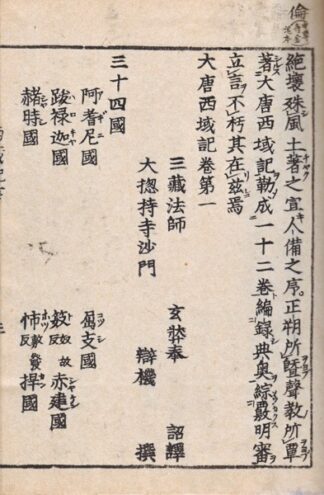 倫
絶壤殊風土著之宜人備之序正朔所曁聲教所覃
著大唐西域記勒成一十二卷編録典奥綜覈明審
立言不朽其在茲焉
大唐西域記卷第一
三藏法師 玄奘奉 詔譯
大揔持寺沙門 辯機 撰
三十四國
阿耆尼國 屈支國
跋禄迦國 笯奴故反赤建國
赭時國 㤄敷發反捍國